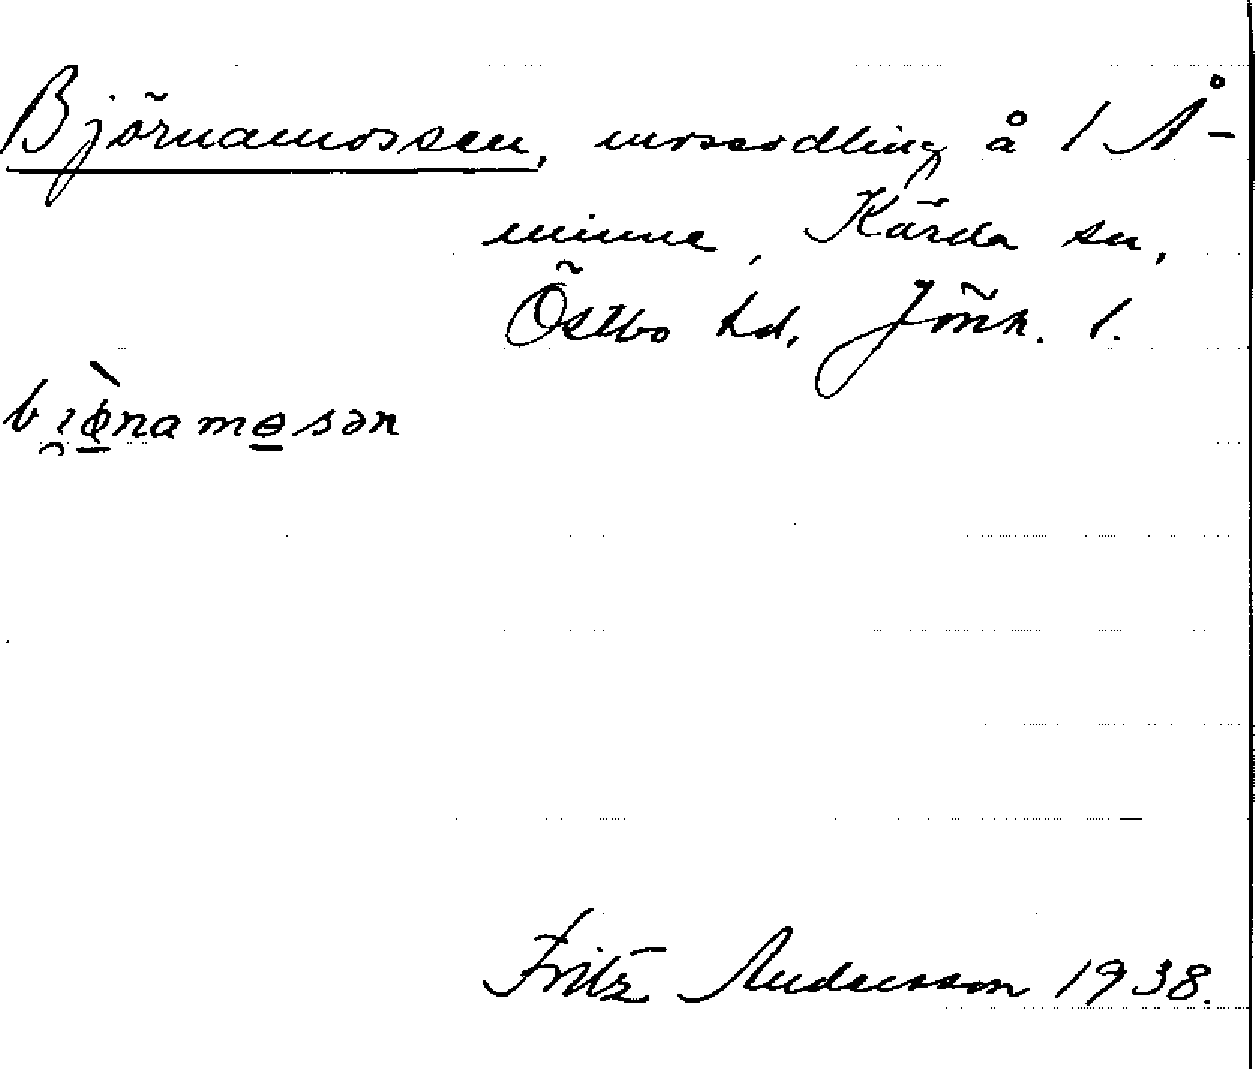 Björnamossen, mosseodling å 1 Å-
minne, Kärda sn,
Östbo hd, Jönk. l.
bi̯ø̠̀namɵ̠sən
Fritz Andersson 1938.